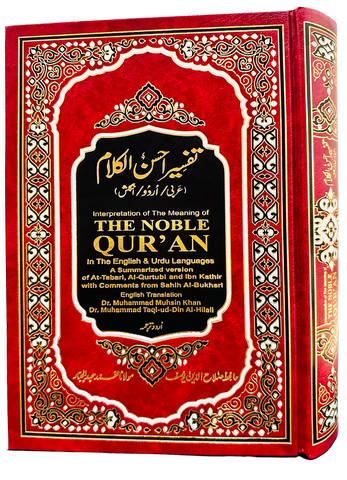 تفسیر احسن الکلام
(عربی/اردو/انگلش)
Interpretation of The Meaning of
THE NOBLE
QUR'AN
In The English & Urdu Languages
A Summarized version
of At-Tabari, Al-Qurtubi and Ibn Kathir
with Comments from Sahih Al-Bukhari
English Translation
Dr. Muhammad Muhsin Khan
Dr. Muhammad Taqi-ud-Din Al-Hilali
اردو ترجمہ
حافظ صلاح الدین یوسف
مولانا محمد عبدالجبار
THE NOBLE
QUR'AN